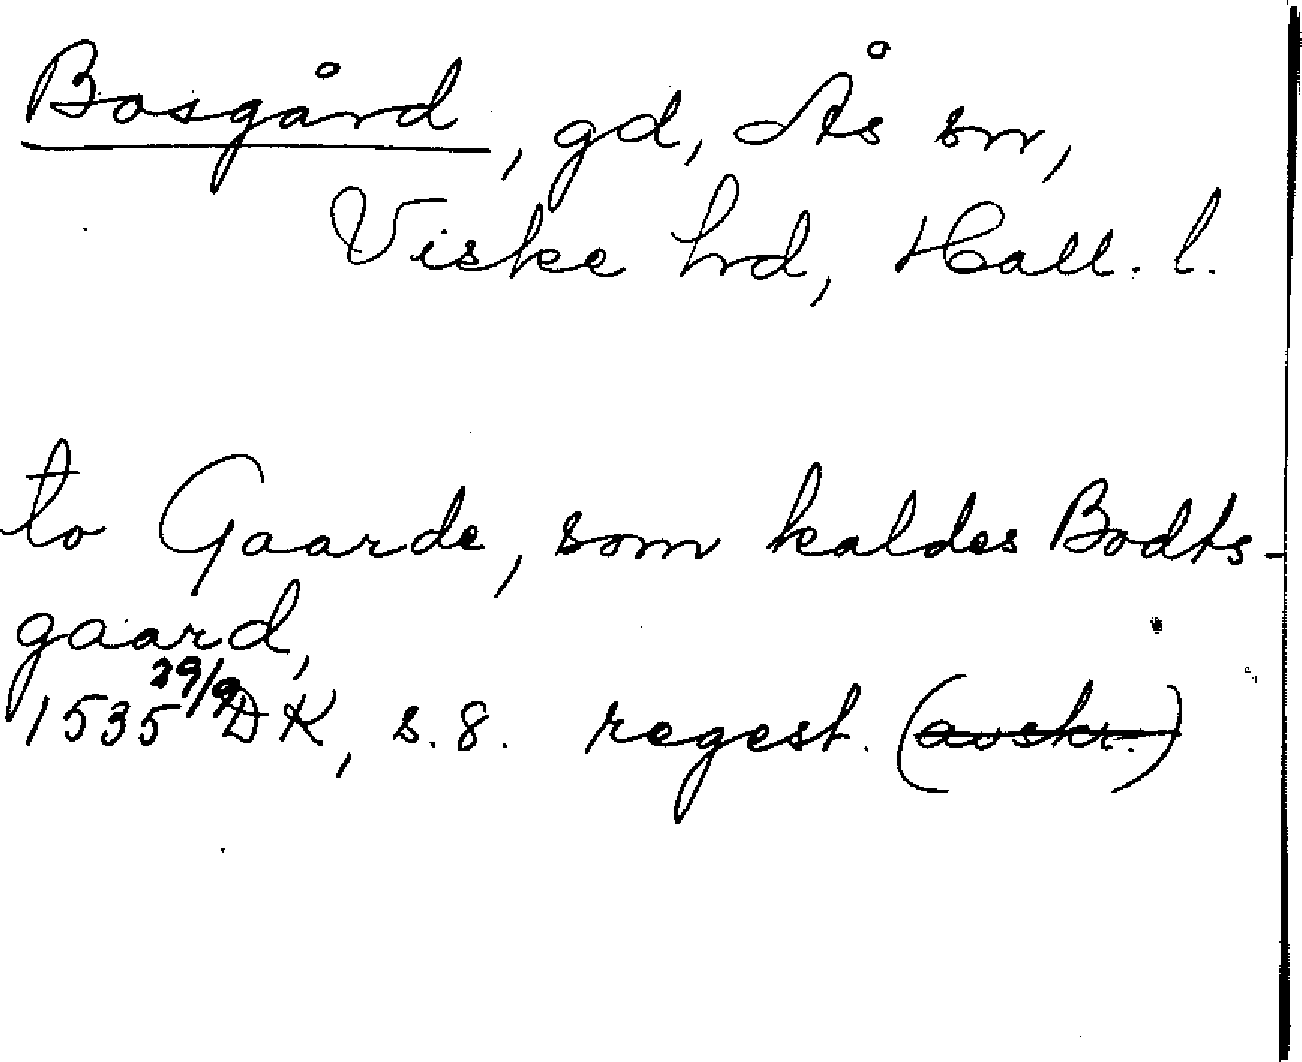 Bosgård, gd, Ås sn,
Viske hrd, Hall. l.
to Gaarde, som kaldes Bodts-
gaard,
1535 29/9 DK, s. 8. regest. (avskr.)